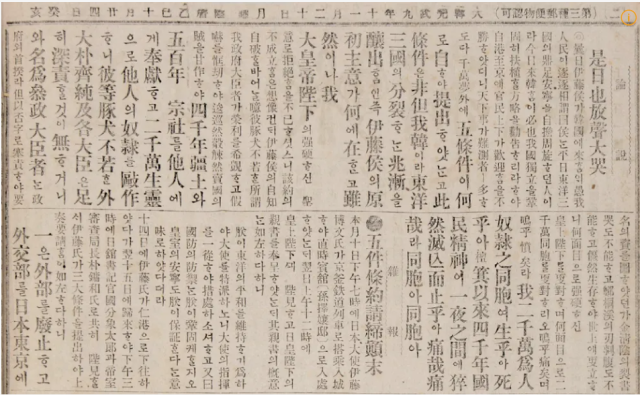 第三種郵便物認可
大韓光武九年十一月二十日 月曜 陰曆乙巳十月廿四日癸亥
論說
是日也放聲大哭
曩日伊藤侯가韓國에來ᄒᆞᆷ애愚我
人民이逡逡相謂曰侯ᄂᆞᆫ平日東洋三
國의鼎足安寧을自擔周旋ᄒᆞ던人이
라今日來韓ᄒᆞᆷ이必也我國獨立을鞏
固히扶植ᄒᆞᆯ方略을勸告ᄒᆞ리라ᄒᆞ야
自港至京에官民上下가歡迎ᄒᆞᆷ을不
勝ᄒᆞ얏더니天下事가難測者ㅣ多ᄒᆞ
도다千萬夢外에五條件이何
로自ᄒᆞ야提出ᄒᆞ얏ᄂᆞᆫ고此
條件은非但我韓이라東洋
三國의分裂ᄒᆞᄂᆞᆫ兆漸을
釀出ᄒᆞᆷ인즉伊藤侯의原
初主意가何에在ᄒᆞᆫ고雖
然이나我
大皇帝陛下의强硬ᄒᆞ신聖
意로拒絶ᄒᆞᆷ을不已ᄒᆞ셧스니該約의
不成立ᄒᆞᆷ은想像컨ᄃᆡ伊藤侯의自知
自破ᄒᆞᆯ바어ᄂᆞᆯ噫彼豚犬不若ᄒᆞᆫ所謂
我政府大臣者가榮利를希覬ᄒᆞ고假
嚇를恇劫ᄒᆞ야逡巡然觳觫然賣國의
賊을甘作ᄒᆞ야四千年疆土와
五百年 宗社를他人에
게奉獻ᄒᆞ고二千萬生靈
으로他人의奴隸를敺作
ᄒᆞ니彼等豚犬不若ᄒᆞᆫ外
大朴齊純及各大臣은足
히深責ᄒᆞᆯ것이無ᄒᆞ거니
와名爲參政大臣者ᄂᆞᆫ政
府의首揆라但以否字로塞責ᄒᆞ야要
名의資를圖ᄒᆞ얏던가金淸陰의裂書
哭도不能ᄒᆞ고鄭桐溪의刃剚腹도不
能ᄒᆞ고偃然生存ᄒᆞ야世上에更立ᄒᆞ
니何面目으로强硬ᄒᆞ신
皇上陛下를更對ᄒᆞ며何面目으로二
千萬同胞를更對ᄒᆞ리오嗚乎痛矣며
嗚乎憤矣라我二千萬爲人
奴隸之同胞여生乎아死
乎아檀箕以來四千年國
民精神이一夜之間에猝
然滅亡而止乎아痛哉痛
哉라同胞아同胞아
雜報
●五件條約請締顚末
本月十日下午七時에日本大使伊藤
博文氏가京釜鐵道列車로搭乘入城
ᄒᆞ야直時賓館(孫擇孃邸)으로入處
ᄒᆞ얏ᄂᆞᆫᄃᆡ翌日下午十二時에
皇上陛下ᄭᅴ 陛見ᄒᆞ고日皇陛下의
親書를奉呈ᄒᆞ얏ᄂᆞᆫᄃᆡ其親書의槪意
ᄂᆞᆫ如左ᄒᆞ다ᄒᆞ니
朕이東洋의平和를維持ᄒᆞ기爲ᄒᆞ
야大使를特派ᄒᆞ노니大使의指揮
를一從ᄒᆞ야措處ᄒᆞ소셔ᄒᆞ고又曰
國防의防禦ᄂᆞᆫ朕이鞏固케ᄒᆞᆯ지오
皇室의安寧도朕이保証ᄒᆞᆫ다ᄂᆞᆫ意
味로ᄒᆞ얏다더라
十四日에伊藤氏가仁港으로下往ᄒᆞ
얏다가翌十五日에歸來ᄒᆞ야下午三
時에日舘書記官國分象太郞과帝室
審査局長朴鏞和氏로共히 陛見ᄒᆞ
야伊藤氏가三大條件을提出ᄒᆞ야上
奏要請ᄒᆞᆷ이如左ᄒᆞ다ᄒᆞ니
一은外部를廢止ᄒᆞ고
外交部를日本東京에